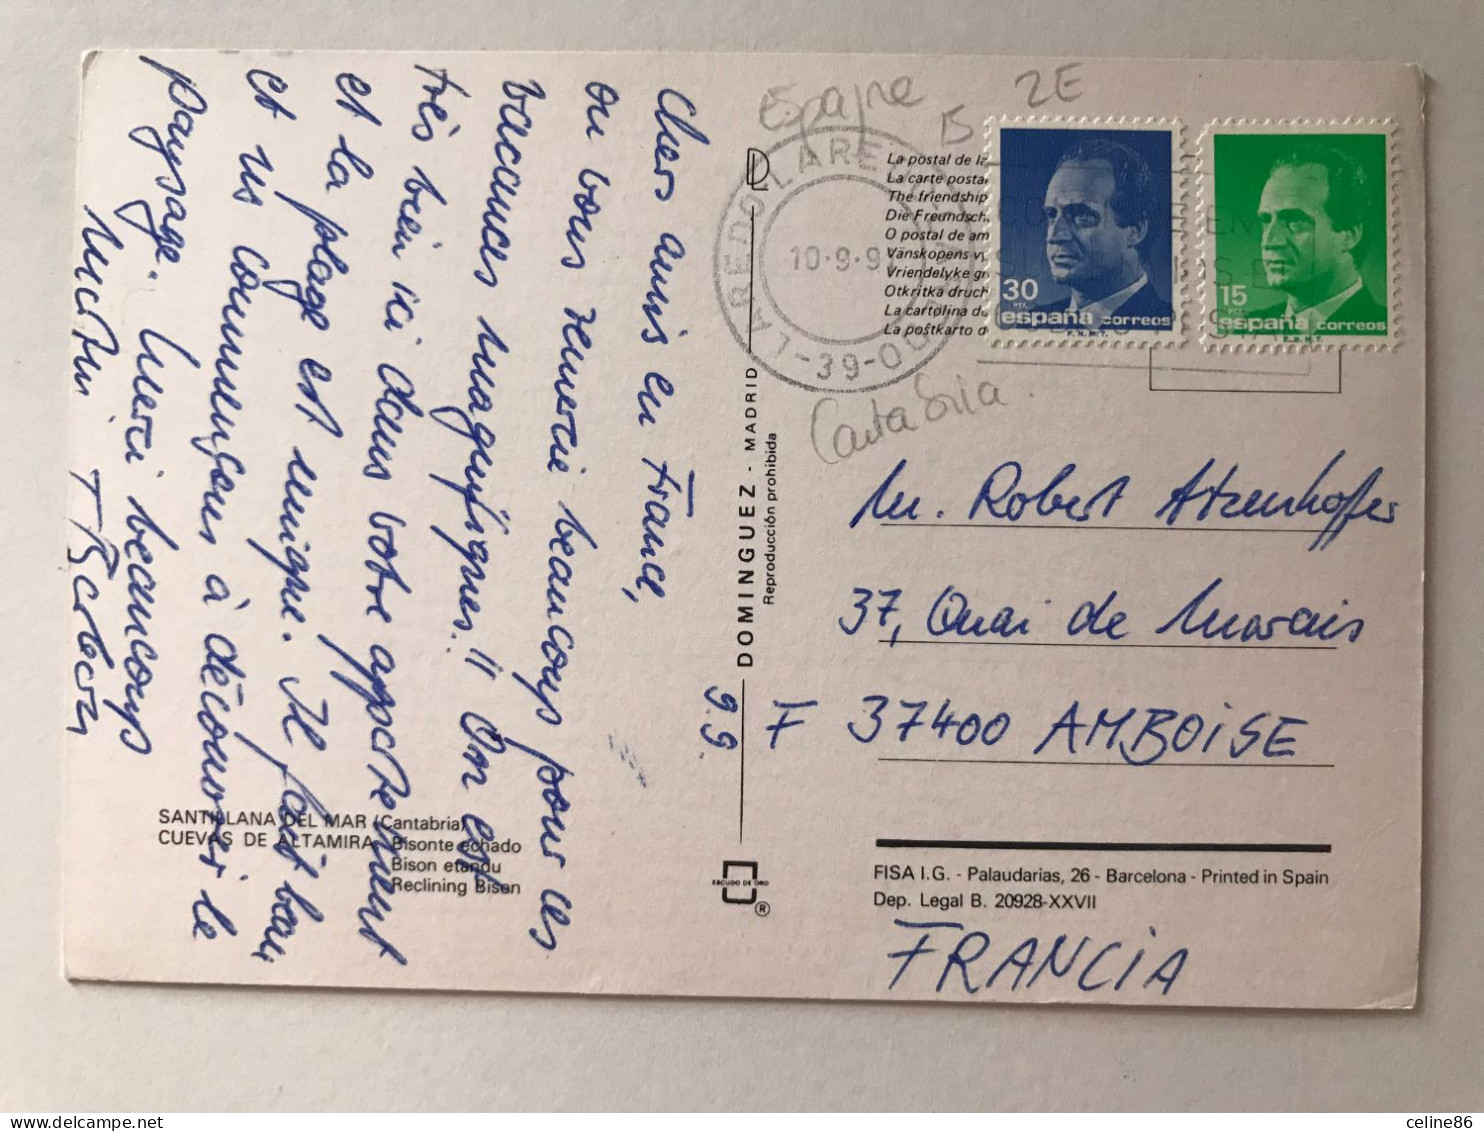 Chers amis en France,
on vous remercie beaucoup pour ces
vaccances magnifiques!! On est
très bien ici dans votre appartement
et la plage est unique. Il fait beau
et us commençons à découvrir le
paysage. Merci beaucoup
9.9.
SANTILLANA DEL MAR (Cantabria)
CUEVAS DE ALTAMIRA. Bisonte echado
Bison etandu
Reclining Bison
DOMINGUEZ - MADRID
Reproducción prohibida
ESCUDO DE ORO
®
Espagne
15 2E
LAREDO
10-9-9
-39-
La postal de la
La carte posta
The friendship
Die Freundsch
O postal de am
Vänskopens vy
Vriendelyke gr
Otkritka druch
La cartolina de
La poŝtkarto d
30
PTA
españa correos
F.N.M.T.
15
PTA
españa correos
F.N.M.T.
Cantabria.
M. Robert Atzenhoffer
37, Quai de Marais
F 37400 AMBOISE
FISA I.G. - Palaudarias, 26 - Barcelona - Printed in Spain
Dep. Legal B. 20928-XXVII
FRANCIA
celine86